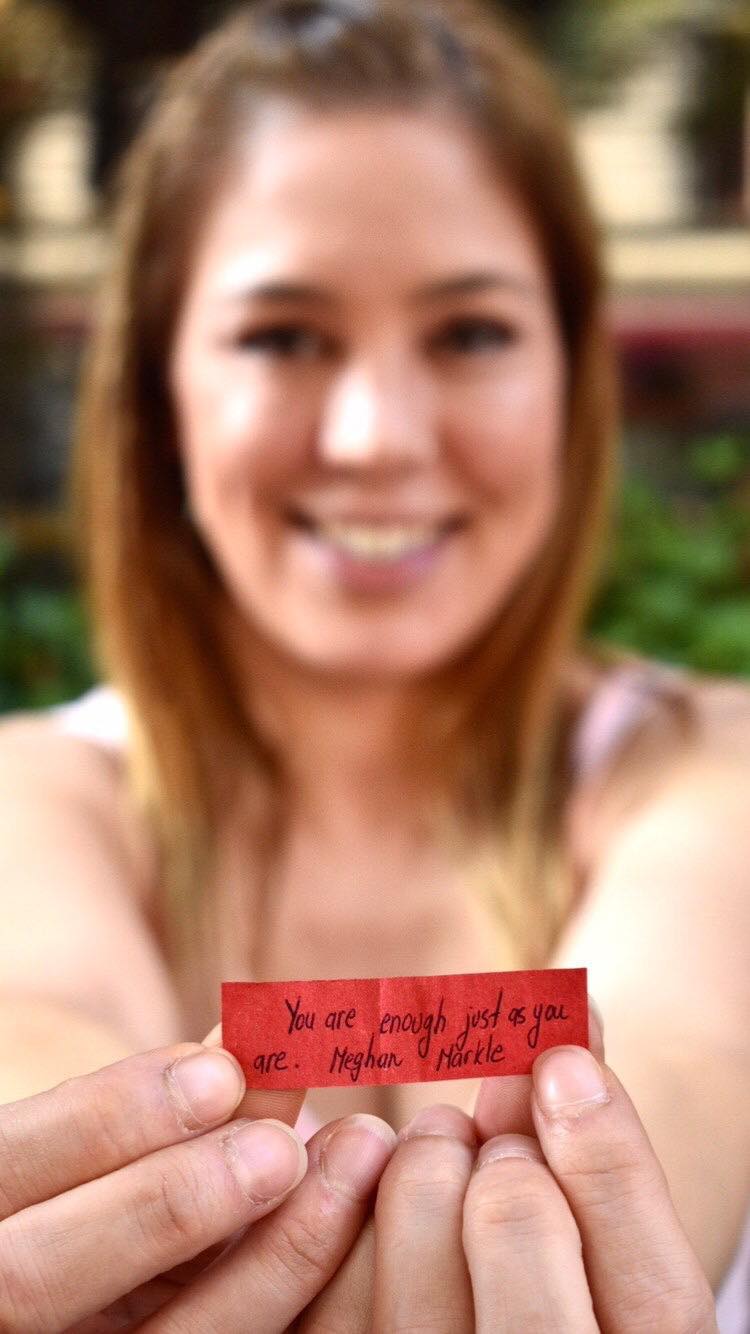 You are enough just as you
are. Meghan Markle